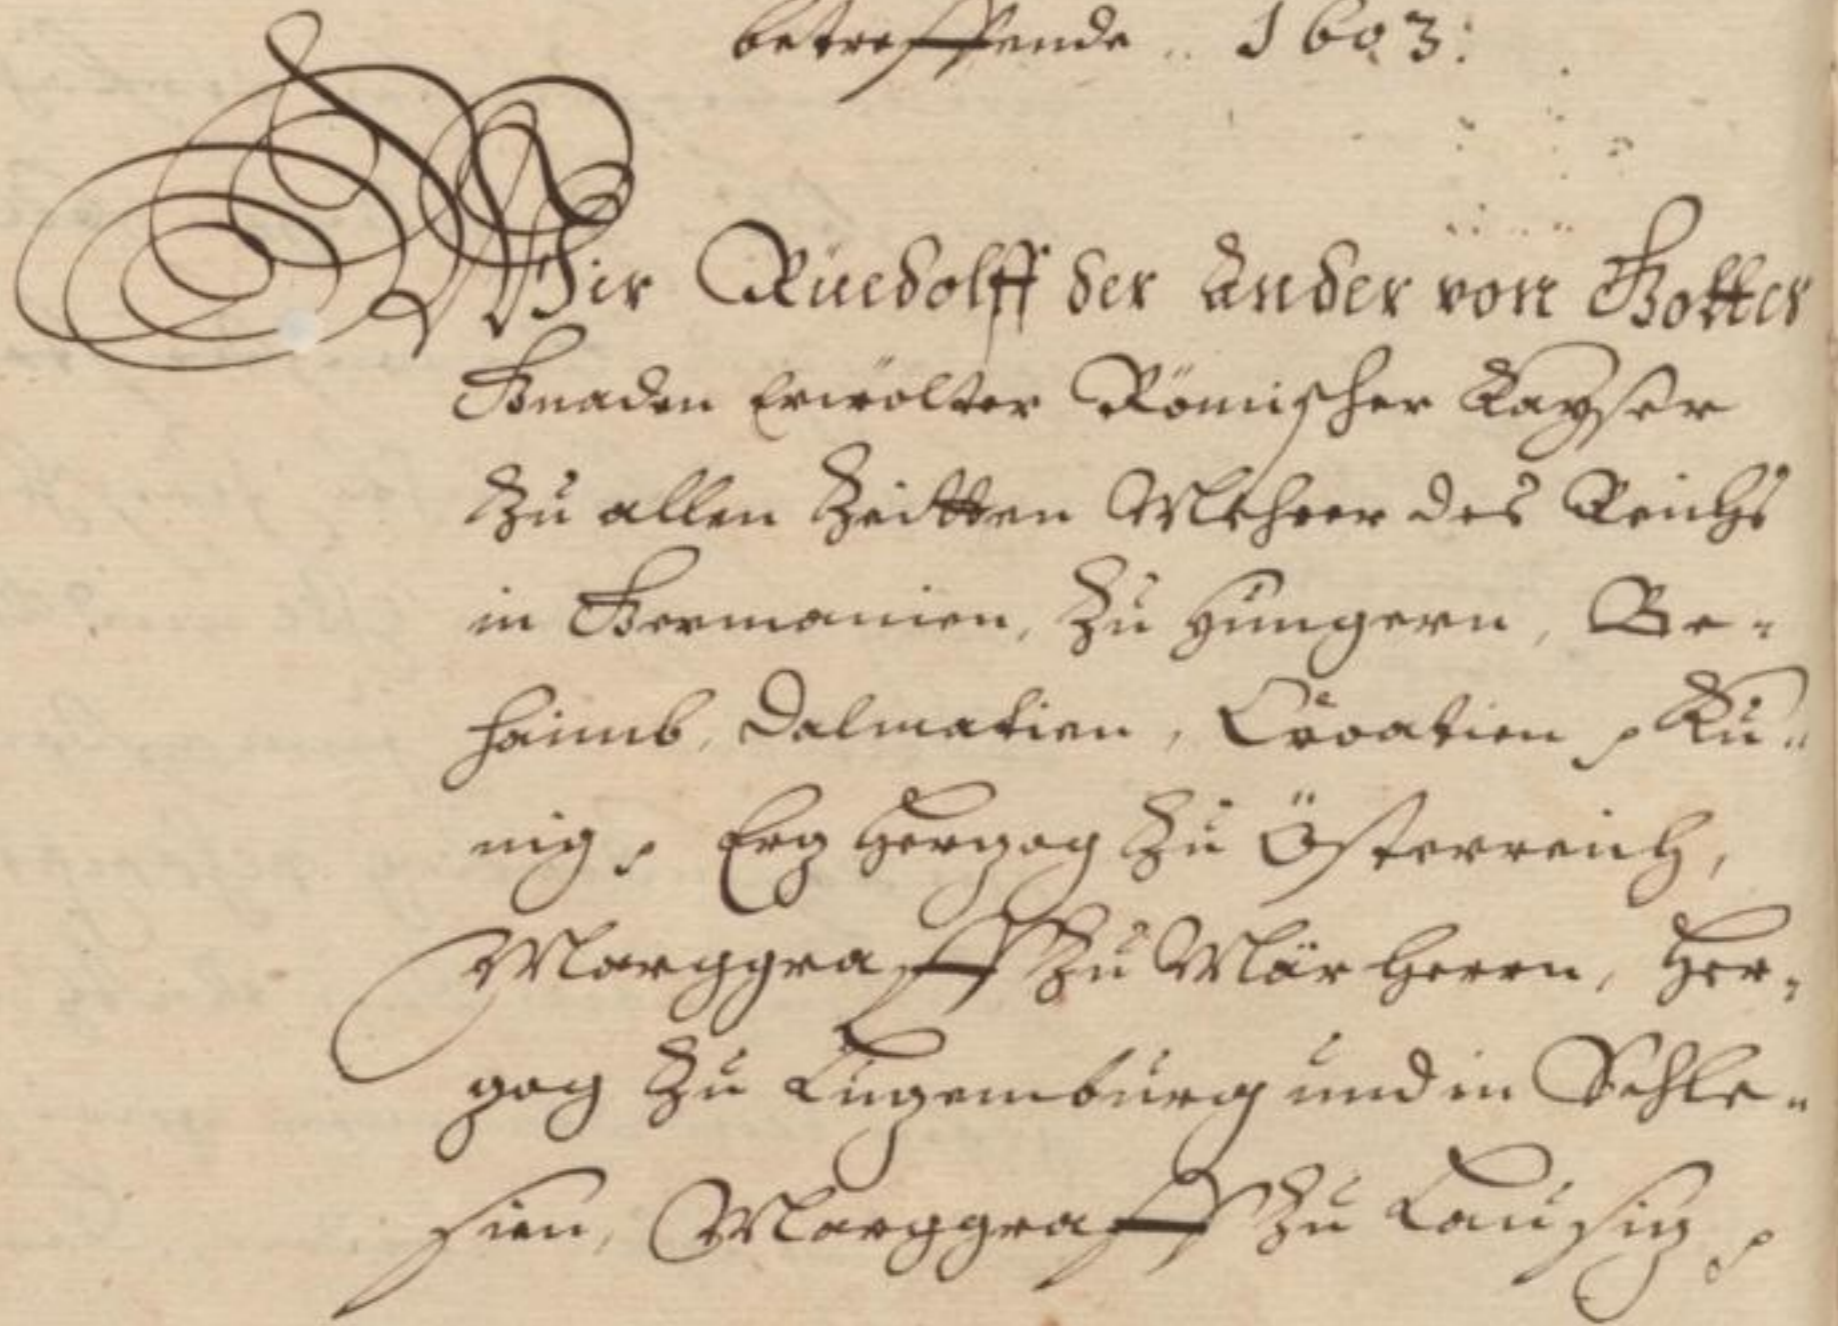 betreffende .. 1603:
Wir Ruedolff der Ander von Gottes
Gnaden Erwölter Römischer Kayser
Zu allen Zeitten Mehrer des Reichs
in Germanien, Zu Hungern, Be-
haimb, Dalmatien, Croatien, Kü-
nig, Erz Herzog Zu Österreich,
Marggraff Zu Märherrn, Her-
zog Zu Luzemburg und in Schle-
sien, Marggraff Zu Lausiz,